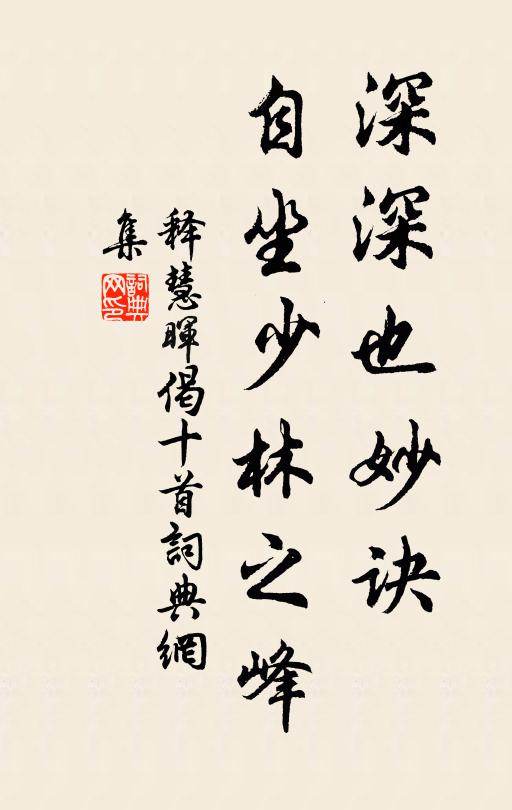 深深也妙诀
自坐少林之峰
释慧暉偈十首詞典網
集
詞典
网印